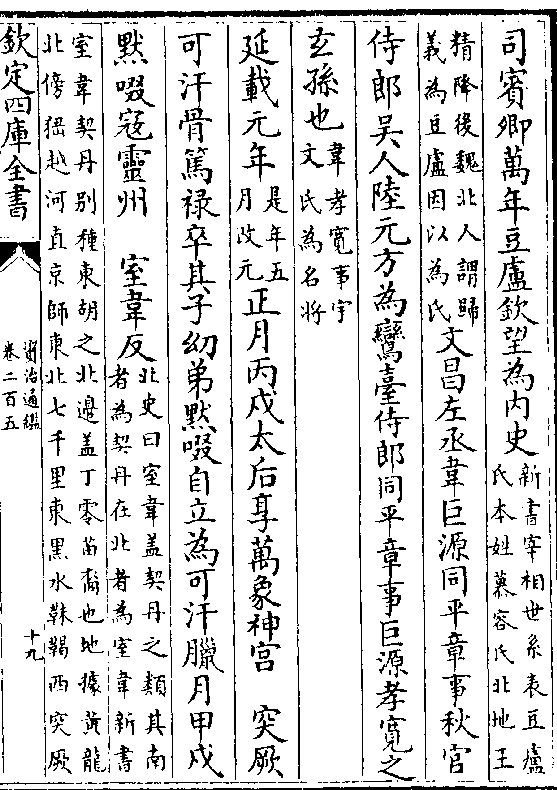 司賓卿萬年豆盧欽望為内史新書宰相世系表豆盧
氏本姓慕容氏北地王
精降後魏北人謂歸
義為豆盧因以為氏文昌左丞韋巨源同平章事秋官
侍郎吳人陸元方為鸞臺侍郎同平章事巨源孝寬之
玄孫也韋孝寬事宇
文氏為名將
延載元年是年五
月改元正月丙戌太后享萬象神宮 突厥
可汗骨篤禄卒其子幼弟默啜自立為可汗臘月甲戌
默啜寇靈州 室韋反北史曰室韋盖契丹之類其南
者為契丹在北者為室韋新書
室韋契丹别種東胡之北邊盖丁零苗裔也地據黄龍
北傍越河直京師東北七千里東黑水靺鞨西突厥
欽定四庫全書
資治通鑑
卷二百五
十九